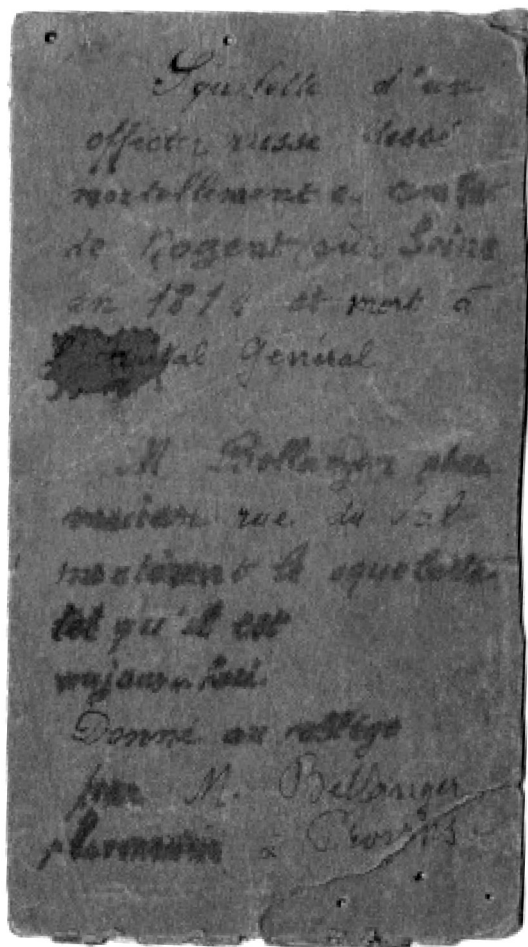 Squelette d'un
officier russe blessé
mortellement au combat
de Nogent sur Seine
en 1814 et mort à
l'hopital Général
M Bellanger phar
macien rue du Val
le squelette
tel qu'il est
aujourd'hui.
Donné au collège
par M. Bellanger
pharmacien à Provins